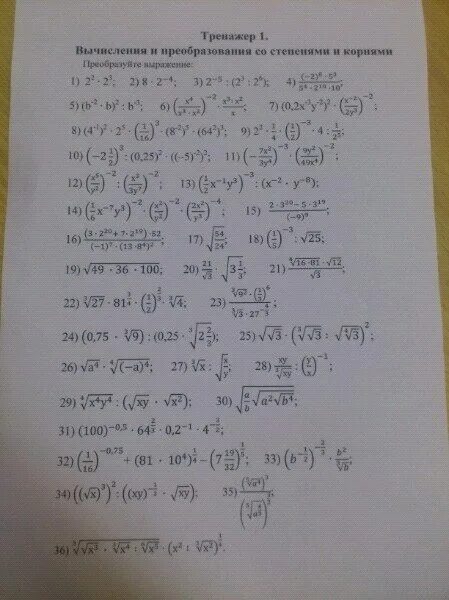 Тренажер 1.
Вычисления и преобразования со степенями и корнями
Преобразуйте выражение:
1) 2² · 2³; 2) 8 · 2⁻⁴; 3) 2⁻⁵ : (2³ : 2⁶); 4) (−2)⁸ · 5³ / 5⁴ · 2¹⁰ · 10⁷;
5) (b⁻² · b) : b⁻³; 6) (x⁴ / x³ · x²)⁻² : x³ · x² / x; 7) (0,2x⁻³y⁻²)² · (x⁻² / 2y³)⁻²
8) (4⁻¹)² · 2⁵ · (1/16)³ · (8⁻²)⁵ · (64²)³; 9) 2² · 1/4 · (1/2)⁻³ · 4 : 1/2⁵;
10) (−2 1/2)³ : (0,25)² · ((−5)⁻²)²; 11) (−7x² / 3y⁴)⁻³ · (9y² / 49x⁴)⁻²;
12) (x⁶ / y³)⁻² : (x² / 3y⁷)⁻²; 13) (1/2 x⁻¹y³)⁻³ : (x⁻² · y⁻⁸);
14) (1/6 x⁻⁷y³)⁻² · (x² / y³)⁻² · (2x² / y³)⁻⁴ 15) 2 · 3²⁰ − 5 · 3¹⁹ / (−9)⁹;
16) (3 · 2²⁰ + 7 · 2¹⁹) · 52 / (−1)⁷ · (13 · 8⁴)²; 17) √(54/24); 18) (1/5)⁻³ : √25;
19) √(49 · 36 · 100); 20) 21/√3 · √(3 1/3); 21) ⁴√(16 · 81) · √12 / √3;
22) ³√27 · 81^(3/4) · (1/2)^(2/3) · ³√4; 23) ³√9² · (1/3)⁶ / ³√3 · 27^(−4/3)
24) (0,75 · ³√9) : (0,25 · ³√(2 2/3)); 25) √√3 · (³√√3 : √(⁴√3))²;
26) √a⁴ · ⁴√((−a)⁴); 27) ³√x : √(x/y); 28) xy / ³√(xy) : (y/x)^(−1/3);
29) ⁴√(x⁴y⁴) : (√(xy) · √x²) 30) √(a/b √(a²√b⁴));
31) (100)^(−0,5) · 64^(2/3) · 0,2⁻¹ · 4^(−3/2);
32) (1/16)^(−0,75) + (81 · 10⁴)^(1/4) − (7 19/32)^(1/5); 33) (b^(−1/2))^(−2/3) · b² / ³√b;
34) ((√x)³)² : ((xy)^(−1/3) · √(xy); 35)
36)